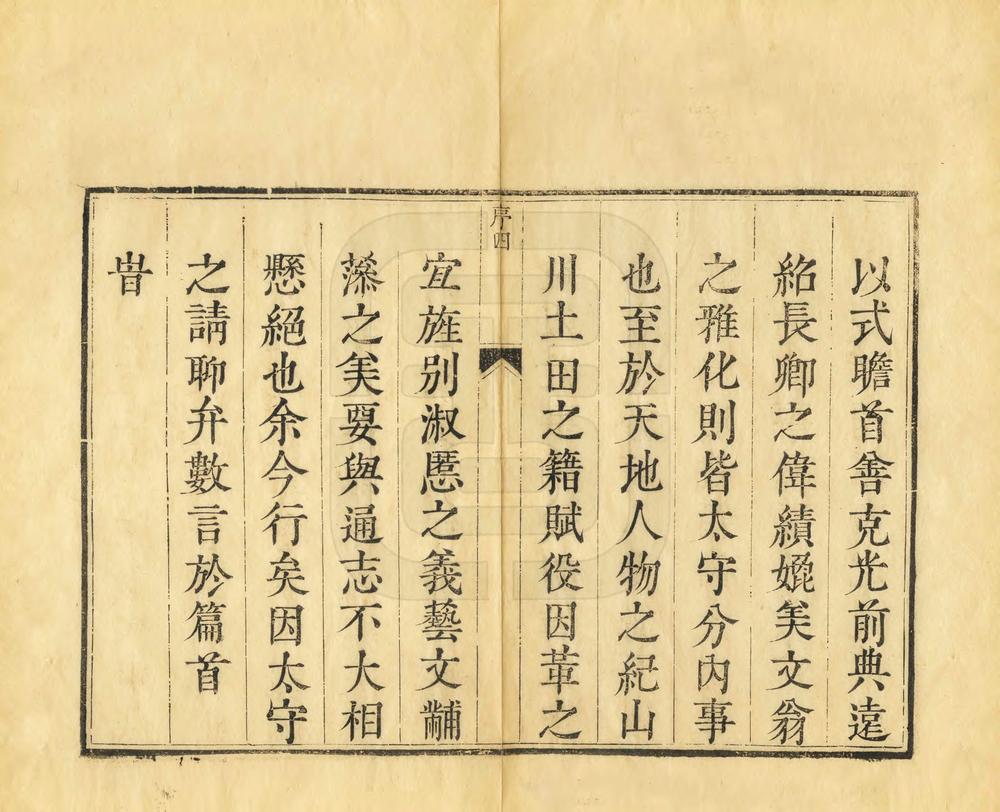 以式瞻首善克光前典遠
紹長卿之偉績媲美文翁
之雅化則皆太守分內事
也至於天地人物之紀山
川土田之籍賦役因革之
序四
宜旌别淑慝之義藝文黼
藻之美要與通志不大相
懸絕也余今行矣因太守
之請聊弁數言於篇首
旹